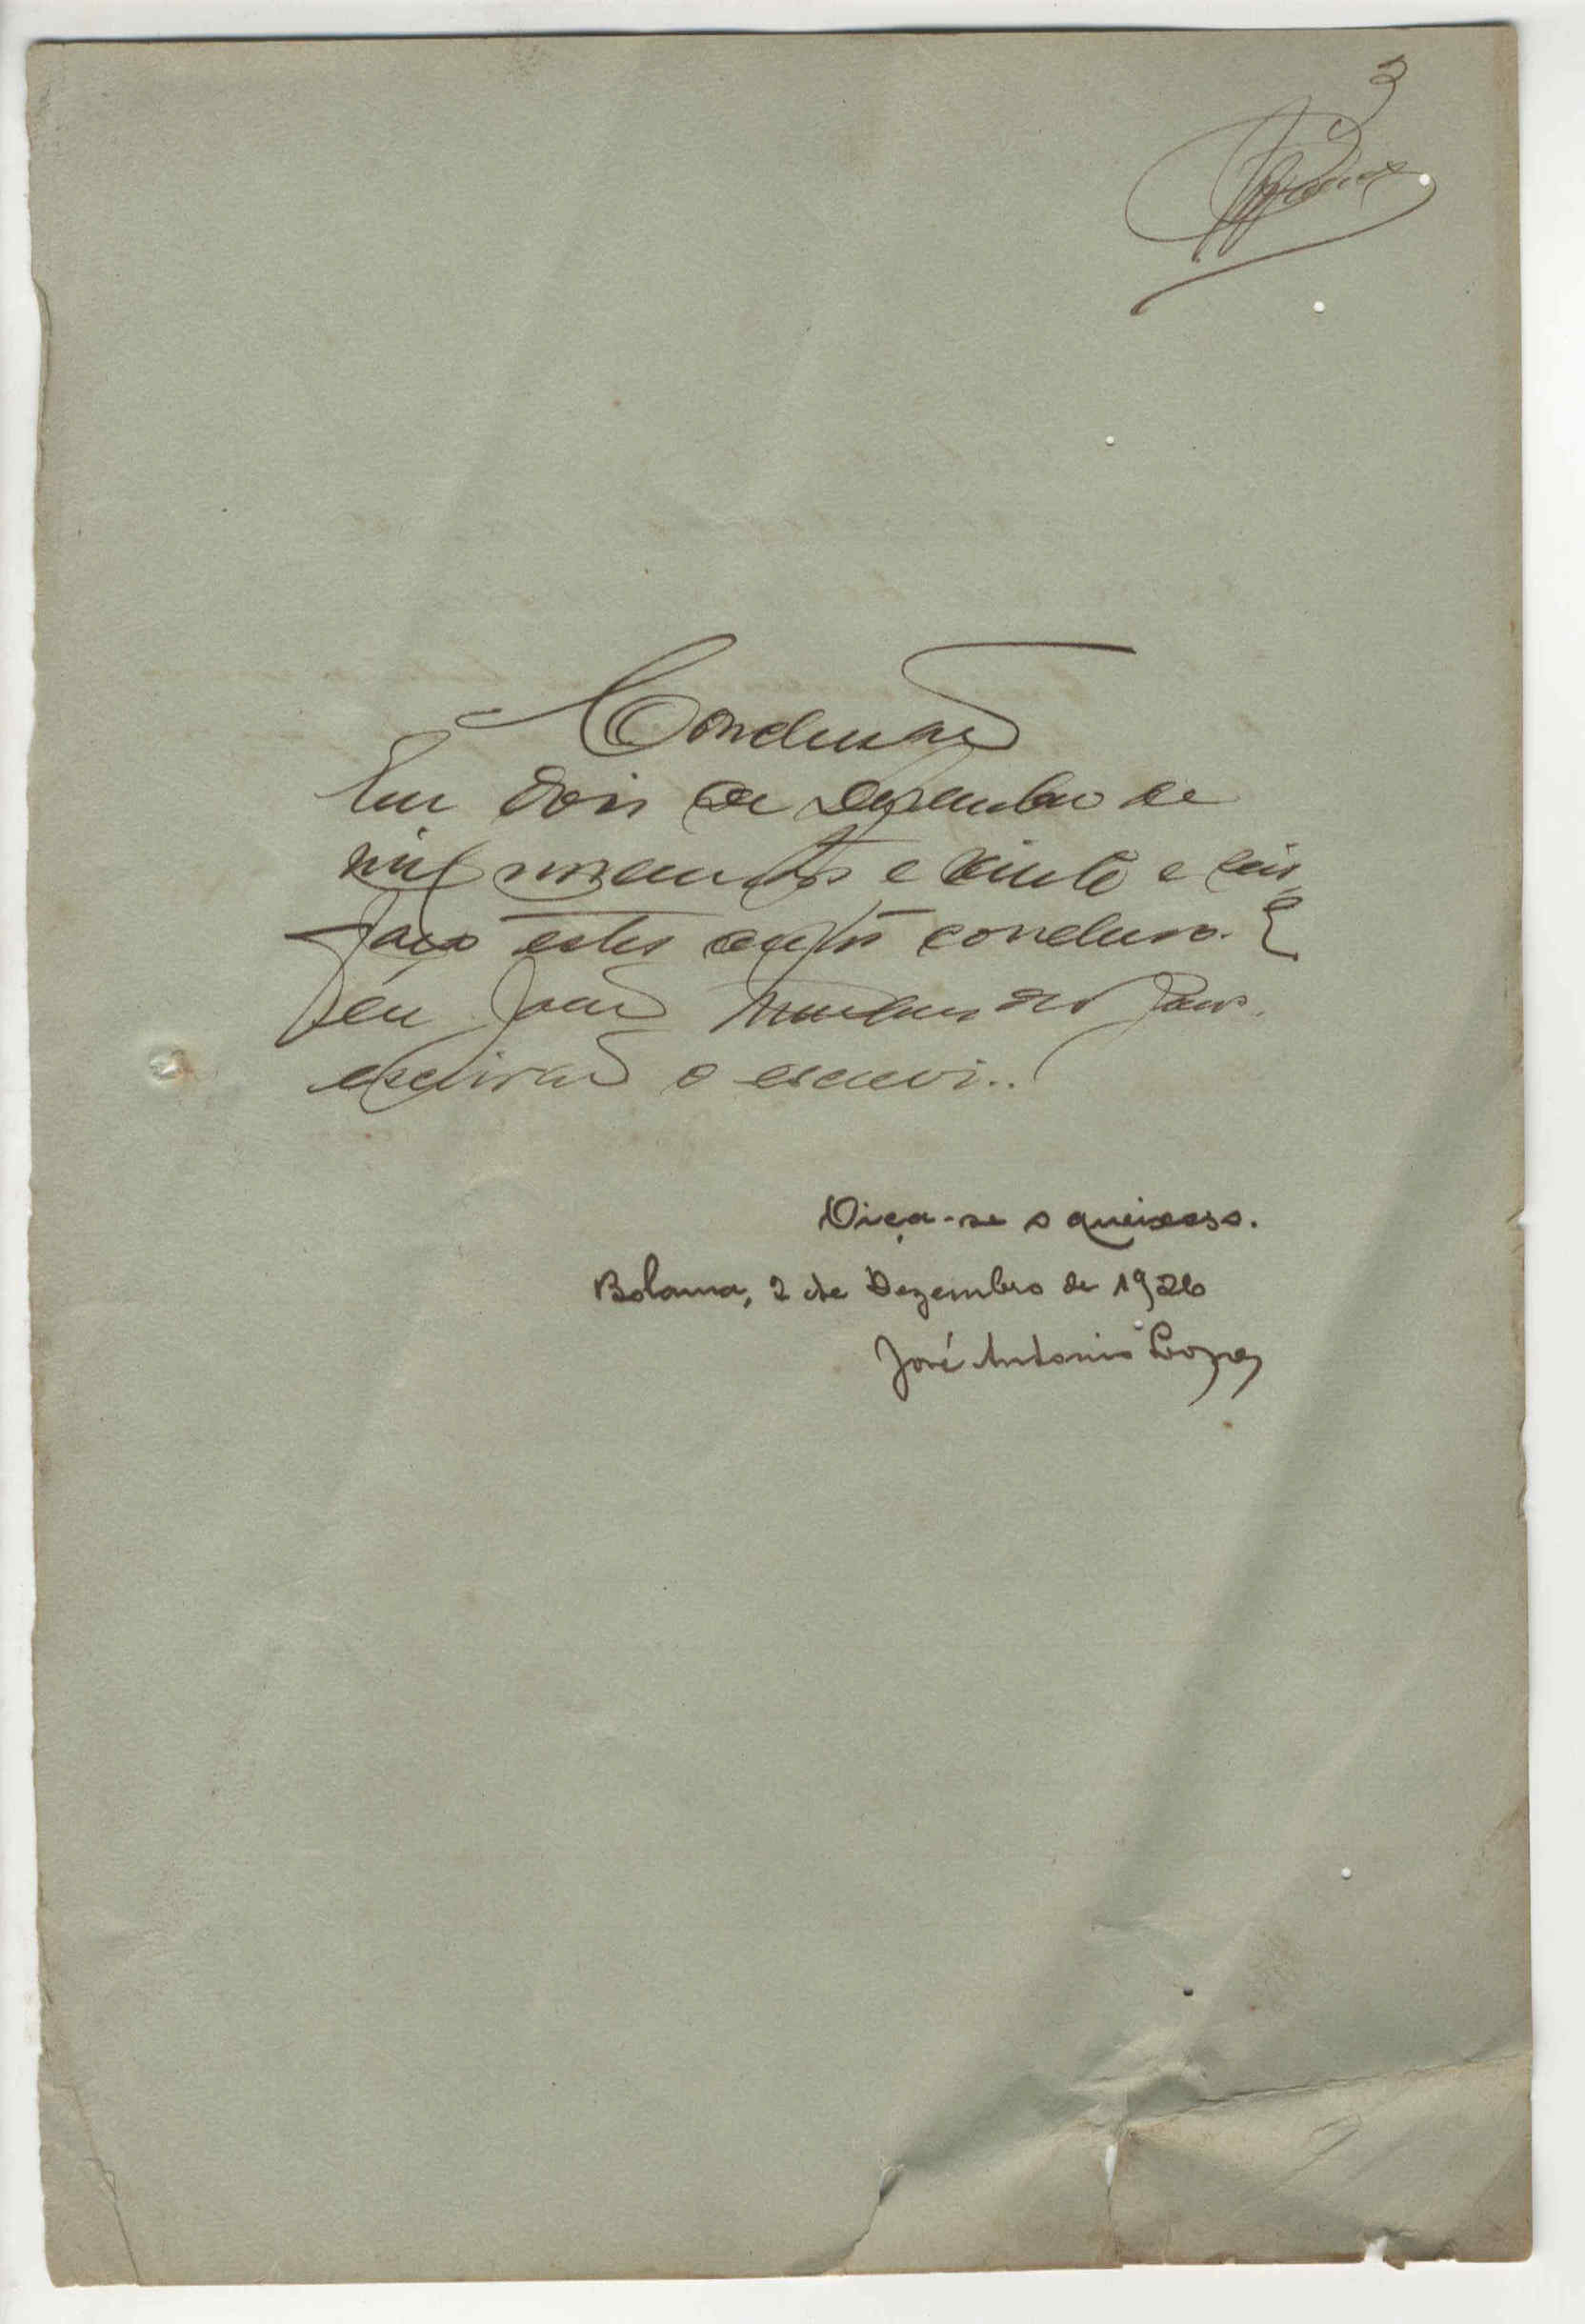 3
Conclusão
Em dois de Dezembro de
mil novecentos e vinte e seis,
faço estes autos conclusos. E
eu João
escrivão o escrevi..
Oiça-se o queixoso.
Bolama, 2 de Dezembro de 1926
José Antonio Lopes